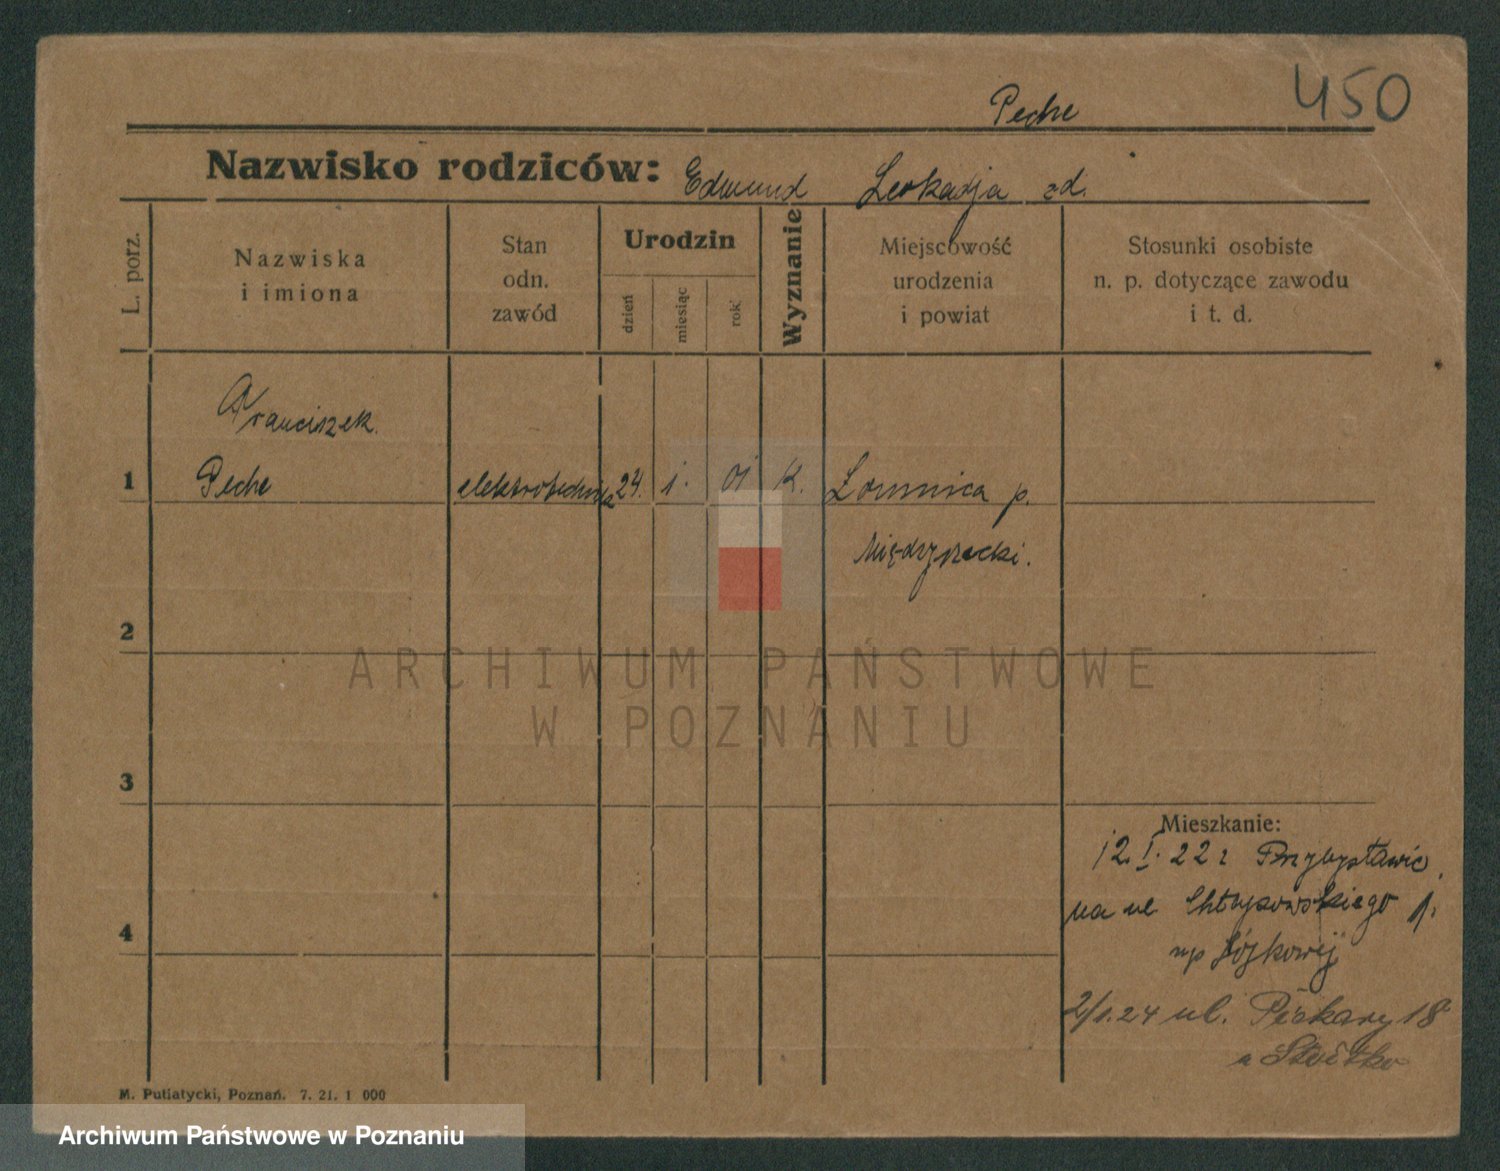 450
Peche
Nazwisko rodziców: Edmund Leokadja zd.
L. porz.
Nazwiska
i imiona
Stan
odn.
zawód
Urodzin
dzień
miesiąc
rok
Wyznanie
Miejscowość
urodzenia
i powiat
Stosunki osobiste
n. p. dotyczące zawodu
i t. d.
Franciszek.
1 Peche elektrotechnik 24. 1. 01 k. Łomnica p.
Międzyrzecki.
2
3
4
Mieszkanie:
12. I. 22 r Przybysławic,
na ul Chłapowskiego
np
2/1.24 ul. Piekary 18
ARCHIWUM PAŃSTWOWE
W POZNANIU
M. Putiatycki, Poznań. 7. 21. 1 000
Archiwum Państwowe w Poznaniu